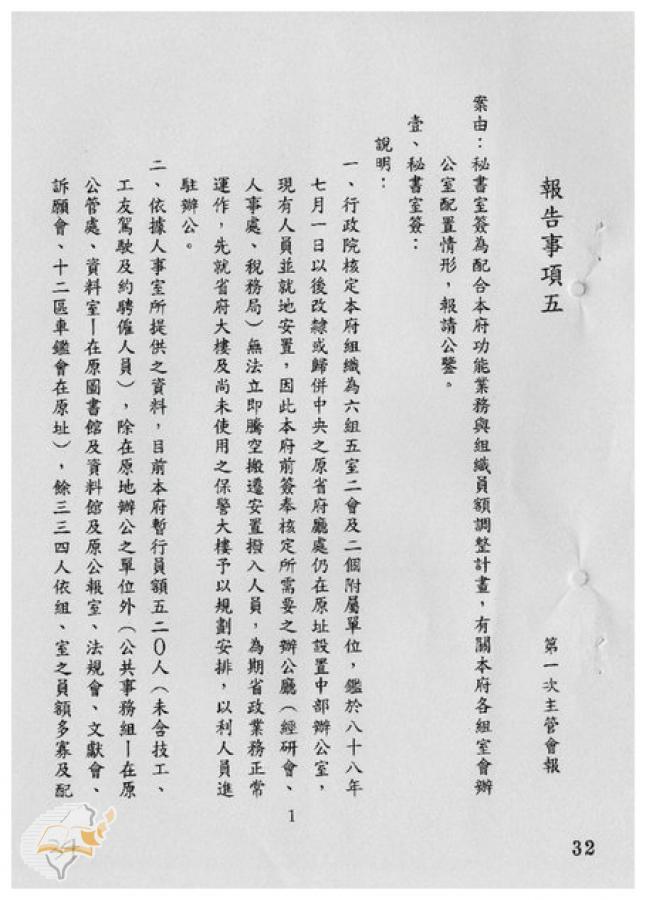 報告事項五
第一次主管會報
案由：秘書室簽為配合本府功能業務與組織員額調整計畫，有關本府各組室會辦
公室配置情形，報請公鑒。
壹、秘書室簽：
說明：
一、行政院核定本府組織為六組五室二會及二個附屬單位，鑑於八十八年
七月一日以後改隸或歸併中央之原省府廳處仍在原址設置中部辦公室，
現有人員並就地安置，因此本府前簽奉核定所需要之辦公廳（經研會、
人事處、稅務局）無法立即騰空搬遷安置撥入人員，為期省政業務正常
運作，先就省府大樓及尚未使用之保警大樓予以規劃安排，以利人員進
駐辦公。
二、依據人事室所提供之資料，目前本府暫行員額五二0人（未含技工、
工友駕駛及約聘僱人員），除在原地辦公之單位外（公共事務組—在原
公管處、資料室—在原圖書館及資料館及原公報室、法規會、文獻會、
訴願會、十二區車鑑會在原址），餘三三四人依組、室之員額多寡及配
1
32